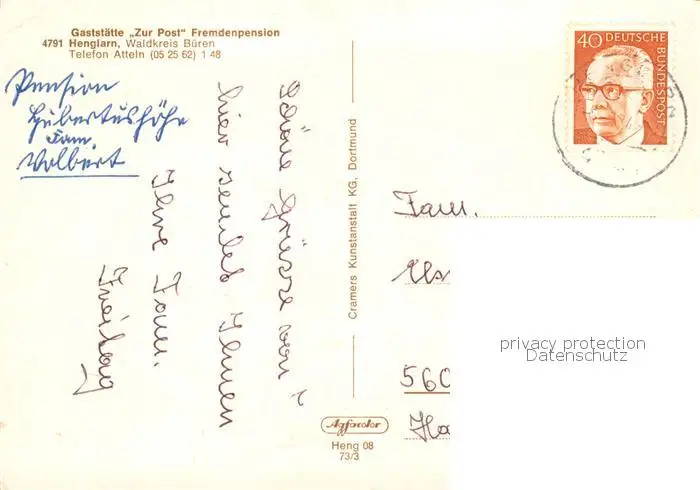 Gaststätte „Zur Post" Fremdenpension
4791 Henglarn, Waldkreis Büren
Telefon Atteln (05 25 62) 1 48
Pension
Hubertushöhe
Fam.
Volbert
Schöne Grüsse von
hier sendet Ihnen
Ihre Fam.
Freitag
Cramers Kunstanstalt KG, Dortmund
Agfacolor
Heng 08
73/3
40 DEUTSCHE
BUNDESPOST
Fam.
Els
560
Ha
privacy protection
Datenschutz